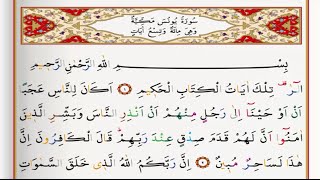 سُورَةُ يُونُسَ مَكِّيَّةٌ
وَهِيَ مِائَةٌ وَتِسْعُ آيَاتٍ
بِسْمِ اللهِ الرَّحْمٰنِ الرَّحِيمِ
الٓرٰ تِلْكَ اٰيَاتُ الْكِتَابِ الْحَكِيمِ ﴿١﴾ اَكَانَ لِلنَّاسِ عَجَبًا
اَنْ اَوْحَيْنَٓا اِلٰى رَجُلٍ مِنْهُمْ اَنْ اَنْذِرِ النَّاسَ وَبَشِّرِ الَّذِينَ
اٰمَنُٓوا اَنَّ لَهُمْ قَدَمَ صِدْقٍ عِنْدَ رَبِّهِمْ قَالَ الْكَافِرُونَ اِنَّ
هٰذَا لَسَاحِرٌ مُبِينٌ ﴿٢﴾ اِنَّ رَبَّكُمُ اللهُ الَّذِي خَلَقَ السَّمٰوَاتِ